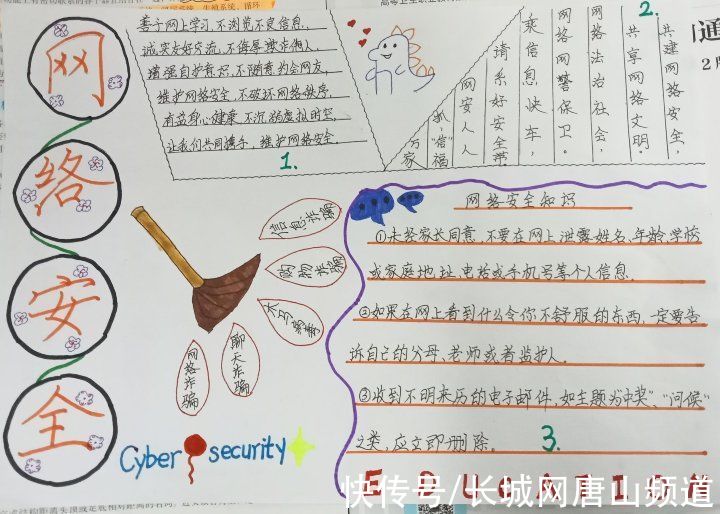 网
络
安
全
善于网上学习,不浏览不良信息。
诚实友好交流,不侮辱欺诈他人。
增强自护意识,不随意约会网友。
维护网络安全,不破坏网络秩序。
有益身心健康,不沉溺虚拟时空。
让我们共同携手,维护网络安全。
1.
2.
共建网络安全,
共享网络文明。
网络法治社会,
网络网警保卫。
乘信息快车,
请系好安全带
网安人人
万家
信息诈骗
木马病毒
聊天诈骗
网络诈骗
Cyber security
网络安全知识
①未经家长同意,不要在网上泄露姓名、年龄、学校
或家庭地址、电话或手机号等个人信息。
②如果在网上看到什么令你不舒服的东西,一定要告
诉自己的父母、老师或者监护人。
③收到不明来历的电子邮件,如主题为“中奖”、“问候”
之类,应立即删除。
3.
快传号/长城网唐山频道